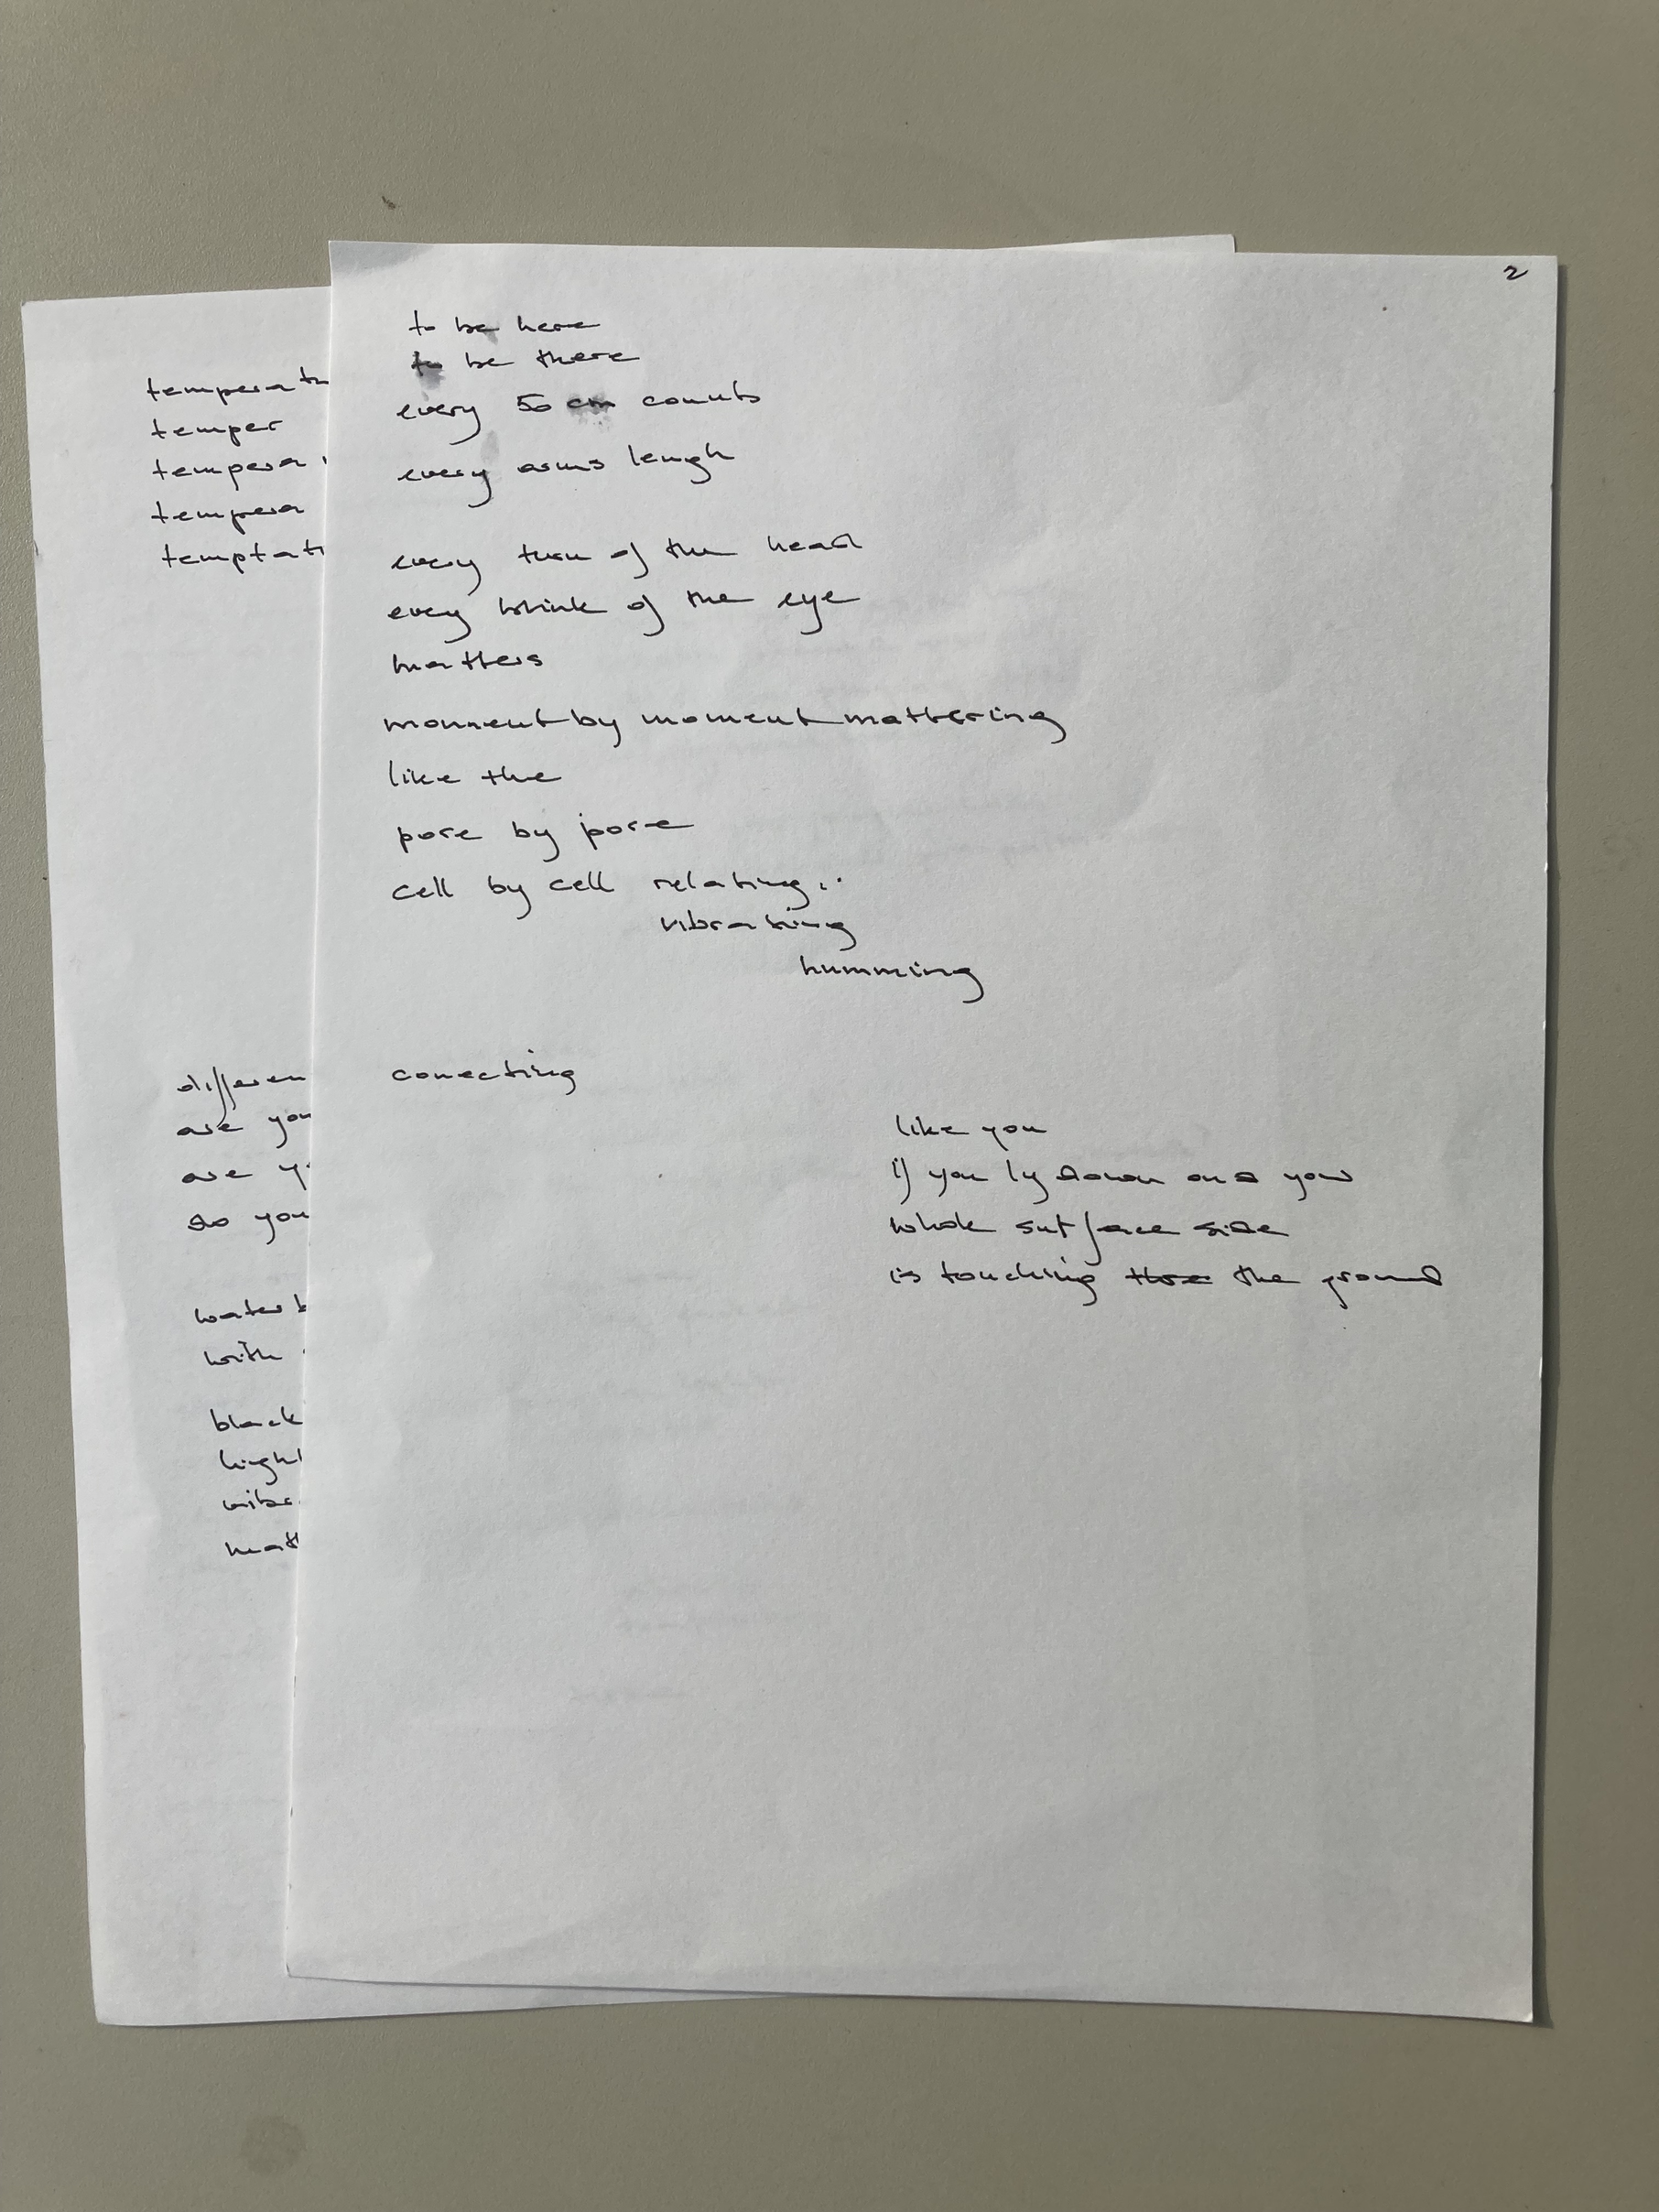 2
to be here
to be there
every 50 cm counts
every arms lengh
every turn of the head
every blink of the eye
matters
moment by moment mattering
like the
pore by pore
cell by cell relating..
vibrating
humming
conecting
like you
if you ly down and your
whole surface side
is touching the ground
temperatu
temper
tempera
tempera
temptati
differen
are you
are y
do you
water b
with
black
light
vibr
matt